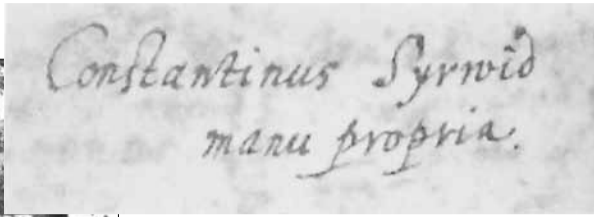 Constantinus Syrwid
manu propria.